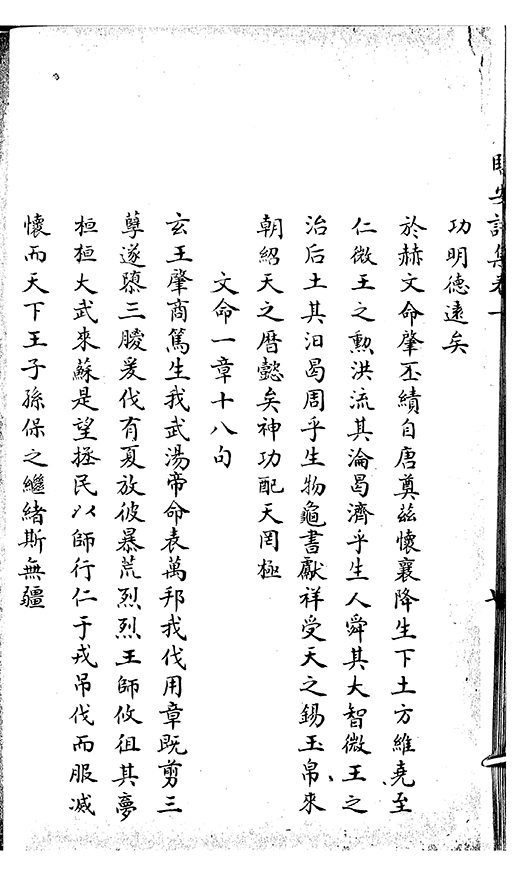 功明德遠矣
於赫文命肇丕績自唐奠玆懷襄降生下土方維堯至
仁微王之勲洪流其淪曷濟乎生人舜其大智微王之
治后土其汨曷周乎生物龜書獻祥受天之錫玉帛來
朝紹天之曆懿矣神功配天罔極
文命一章十八句
玄王肇商篤生我武湯帝命表萬邦我伐用章既剪三
孽遂隳三朡爰伐有夏放彼暴荒烈烈王師攸徂其
桓桓大武來蘇是望拯民以師行仁于戎吊伐而服滅
懷而天下王子孫保之繼緒斯無疆